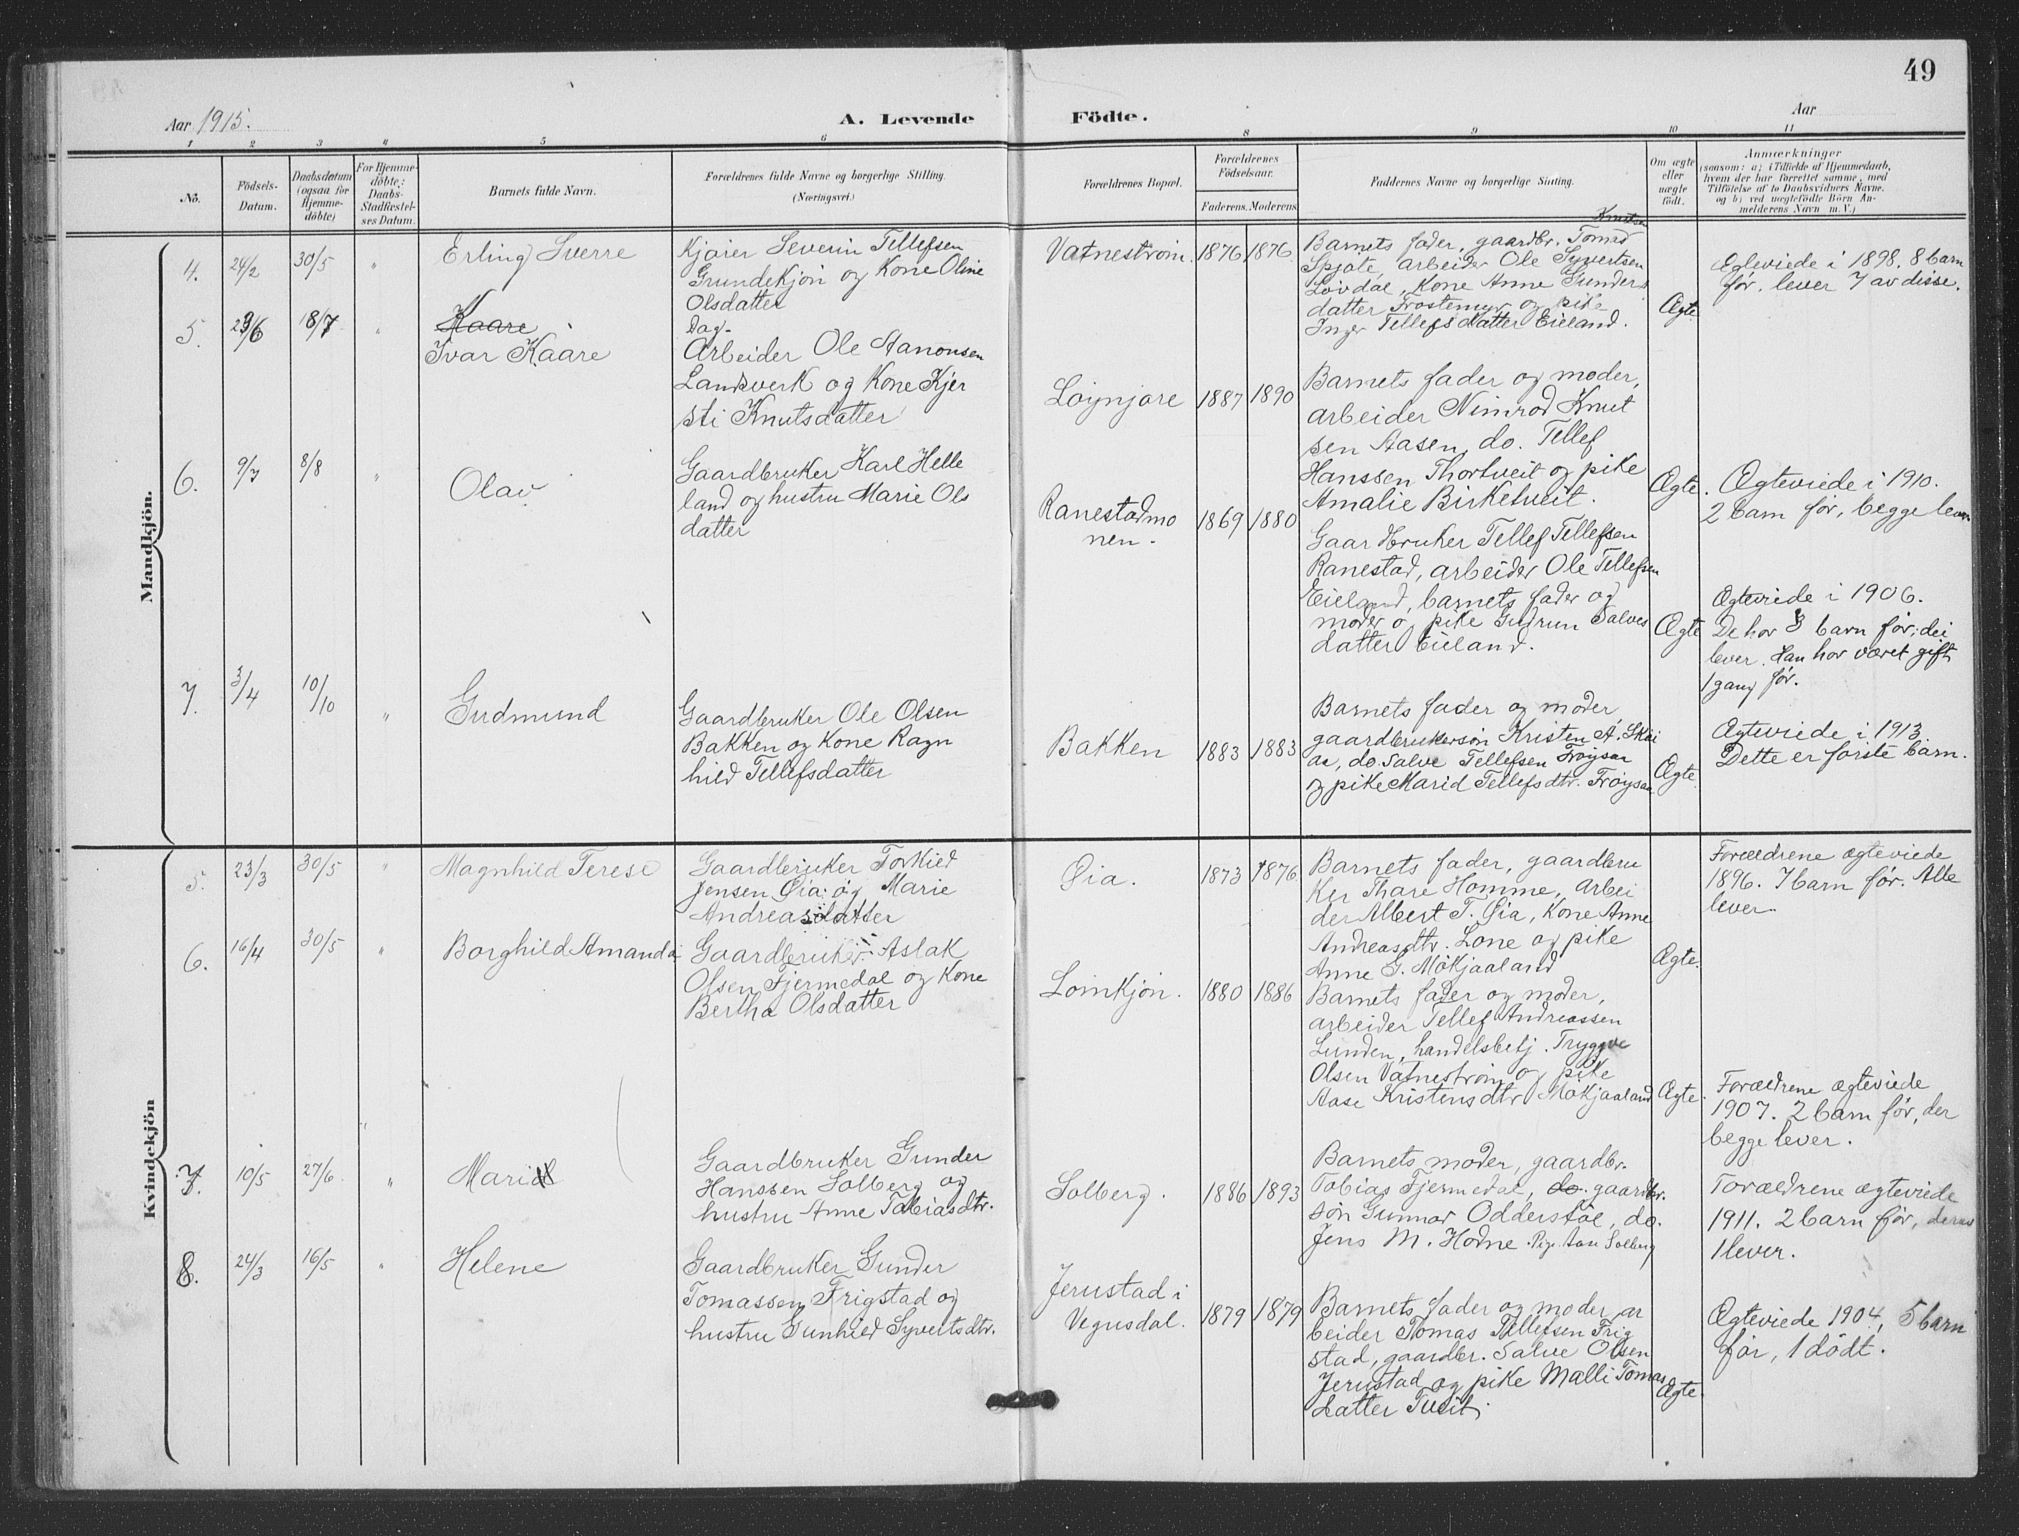 49
Aar 1915.
A. Levende Födte.
Aar
1 2 3 " 5 6 8 9 10 11
No.
Födsels-
Datum.
Daabsdatum
(ogsaa for
Hjemme-
döbte)
For Hjemme-
döbte;
Daabs-
Stadfæstel-
ses Datum.
Barnets fulde Navn.
Forældrenes fulde Navne og borgerlige Stilling.
(Næringsvei.)
Forældrenes Bopæl.
Forældrenes
Födselsaar.
Faderens. Moderens.
Faddernes Navne og borgerlige Stilling.
Om ægte
eller
uægte
födt.
Anmærkninger
(saasom: a; i Tilfælde af Hjemmedaab,
hvem der har forrettet samme, med
Tilföielse af to Daabsvidners Navne.
og b) ved uægtefödte Börn An-
melderens Navn m. V.)
Mandkjön.
4. 24/2 30/5 " Erling Sverre
Kjører Severin Tellefsen
Grundekjøn og Kone Oline
Olsdatter
Vatnestrøm. 1876 1876
Knutsen
Barnets fader, gaardbr. Tomas
Spjøte, arbeider Ole Syvertsen
Løvdal, Kone Anne Gunders
datter Frostemyr og pike
Inger Tellefsdatter Eieland.
Ægte
Ægteviede i 1898. 8 barn
før, lever 7 av disse.
5. 29/6 18/7 "
Kaare
Ivar Kaare
Dag-
Arbeider Ole Aanonsen
Landsverk og Kone Kjer
sti Knutsdatter
Løynjore 1887 1890
Barnets fader og moder,
arbeider Nimrod Knut
sen Aasen, do. Tellef
Hanssen Thortveit og pike
Amalie Birketveit.
Ægte.
Ægteviede i 1910.
2 barn før, begge lever
6. 9/7 8/8 " Olav
Gaardbruker Karl Helle
land og hustru Marie Ols
datter
Ranestadmo
nen. 1869 1880
Gaardbruker Tellef Tellefsen
Ranestad, arbeider Ole Tellefsen
Eieland, barnets fader og
moder o pike Gudrun Salves
datter Eieland.
Ægte
Ægteviede i 1906.
De har 3 barn før; dei
lever. Han har været gift
1 gang før.
7. 3/4 10/10 " Gudmund
Gaardbruker Ole Olsen
Bakken og Kone Ragn
hild Tellefsdatter
Bakken 1883 1883
Barnets fader og moder
gaardbrukersøn Kristen A. Skei
as, do. Salve Tellefsen Frøysaa
og pike Marid Tellefsdtr. Frøysaa
Ægte
Ægteviede i 1913.
Dette er første barn.
Kvindekjön
5. 23/3 30/5 " Magnhild Terese
Gaardbruker Torkied
Jensen Øia og Marie
Andreasdatter
Øia. 1873 1876
Barnets fader, gaardbru
ker Thare Homme, arbei
der Albert T. Øia, Kone Anne
Andreasdtr. Lone og pike
Anne G. Mökjaaland
Ægte.
Forældrene ægteviede
1896. 7 barn før. Alle
lever.
6. 16/4 30/5 " Borghild Amanda
Gaardbruker Aslak
Olsen Fjermedal og Kone
Bertha Olsdatter
Loinkjøn. 1880 1886
Barnets fader og moder,
arbeider Tellef Andreassen
Lunden, handelsbetj. Tryggve
Olsen Vatnestrøm og pike
Aase Kristensdtr Mökjaaland
Ægte.
Forældrene ægteviede
1907. 2 barn før, der
begge lever.
7. 10/5 27/6 " Mari
Gaardbruker Gunder
Hanssen Solberg og
hustru Anne Tobiasdtr.
Solberg. 1886 1893
Barnets moder, gaardbr.
Tobias Fjermedal, do gaardbr.
søn Gunnar Odderstøl, do.
Jens M. Hodne. Solberg
Forældrene ægteviede
1911. 2 barn før, derav
1 lever.
8. 24/3 16/5 " Helene
Gaardbruker Gunder
Tomassen Frigstad og
hustru Gunhild Syvertsdtr.
Jerustad i
Vegusdal. 1879 1879
Barnets fader og moder, ar
beider Tomas Tellefsen Frig
stad, gaardbr. Salve Olsen
Jerustad og pike Malli Tomas
datter Tveit.
Ægte
Ægteviede 1904, 5 barn
før, 1 dödt.